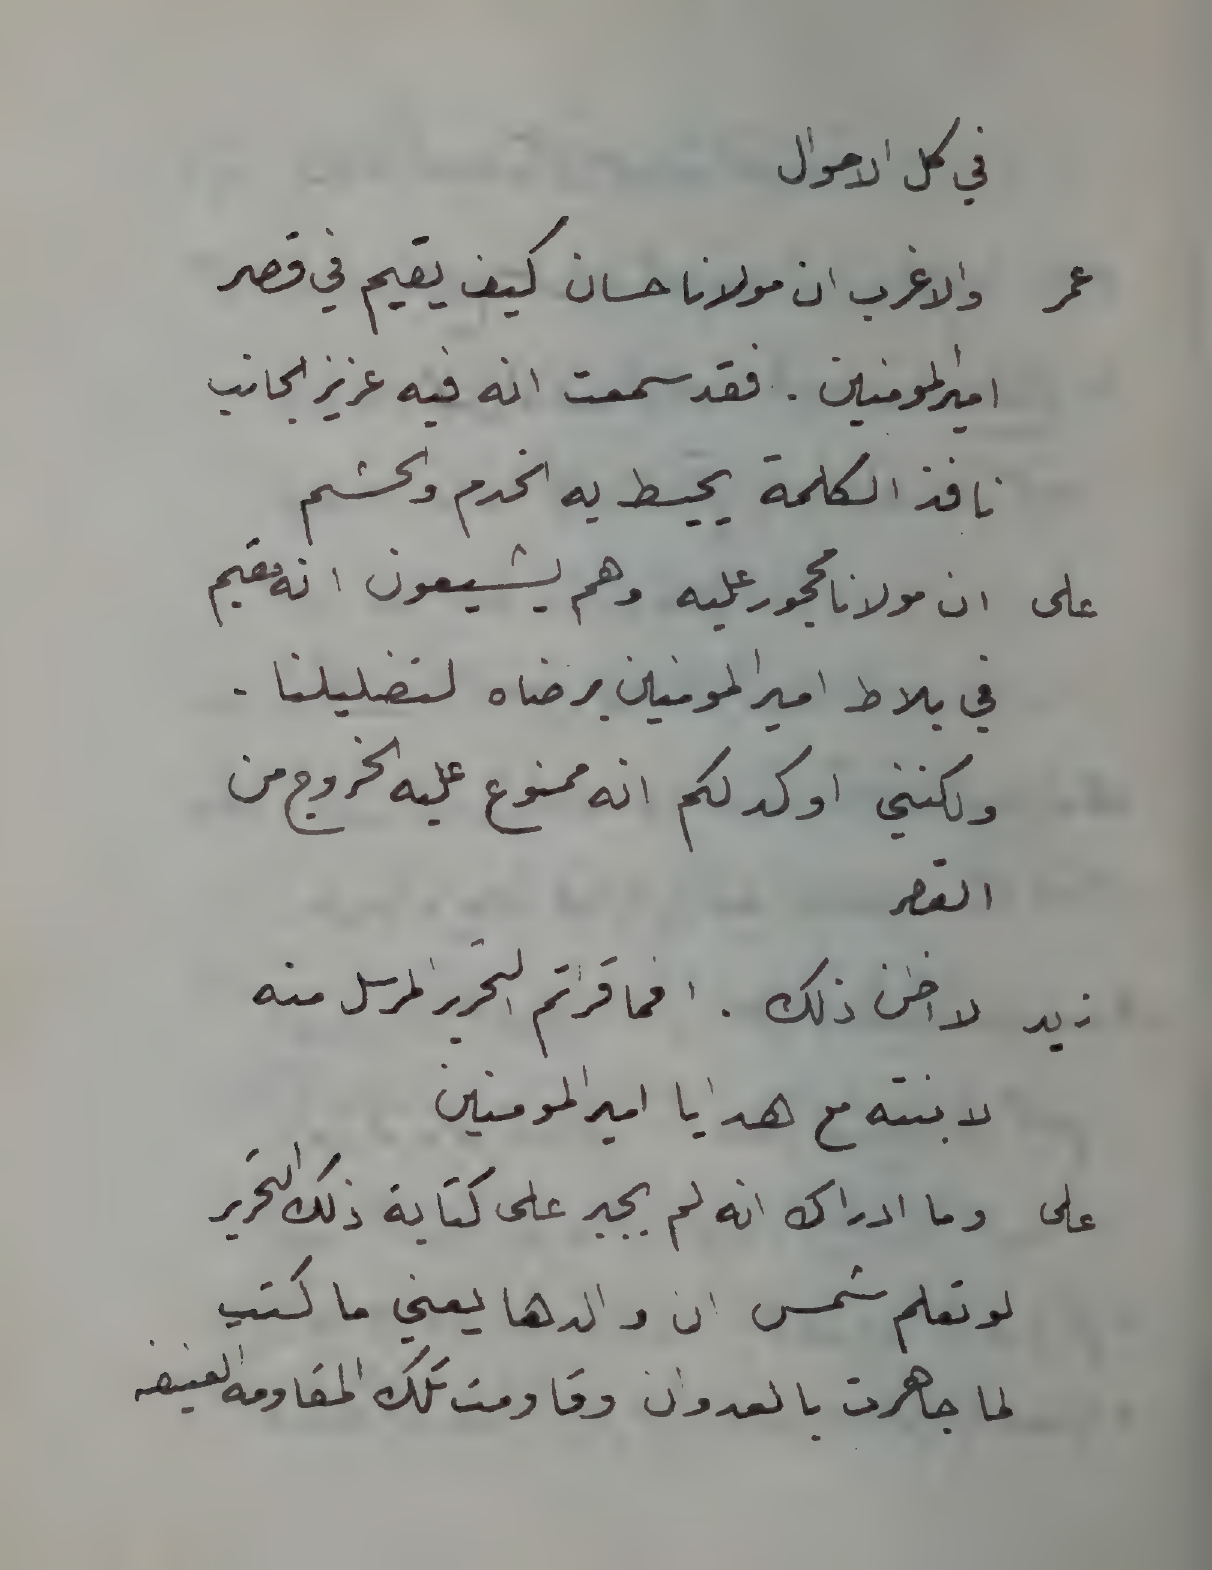 في كل الاحوال
عمر والاغرب ان مولانا حسان كيف يقيم في قصر
امير المومنين . فقد سمعت انه فيه عزيز الجانب
نافذ الكلمة يحيط به الخدم والحشم
على ان مولانا محجور عليه وهم يشيعون انه مقيم
في بلاط امير المومنين برضاه لتضليلنا .
ولكنني اوكد لكم انه ممنوع عليه الخروج من
القصر
زيد لا اظن ذلك . افما قراتم التحرير المرسل منه
لابنته مع هدايا امير المومنين
على وما ادراك انه لم يجبر على كتابة ذلك التحرير
لو تعلم شمس ان والدها يعني ما كتب
لما جاهرت بالعدوان وقاومت تلك المقاومه العنيفه